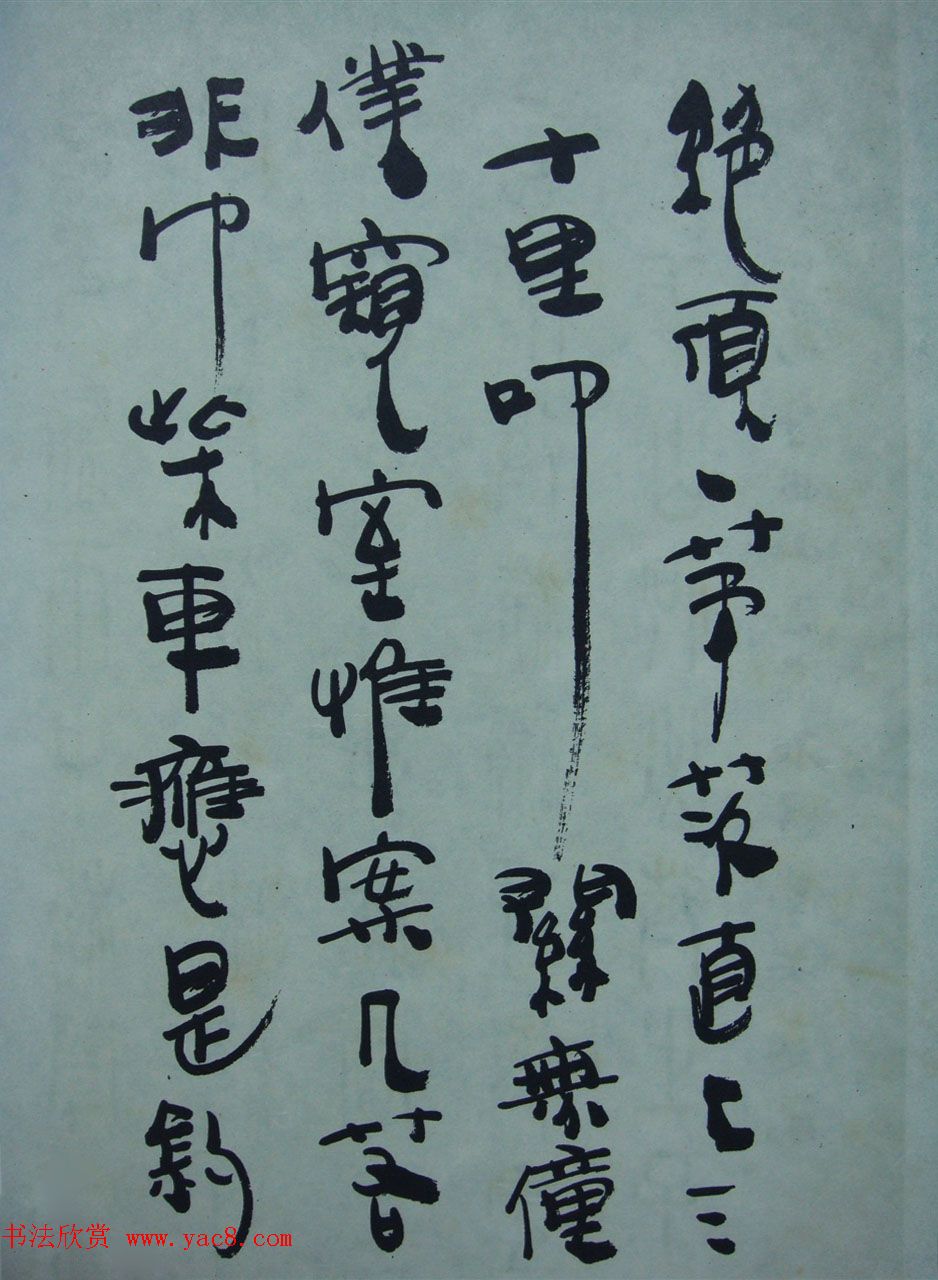 絕頂一茅茨直上三
十里叩關無僮
僕窺室惟案几若
非巾柴車應是釣
书法欣赏 www.yac8.com